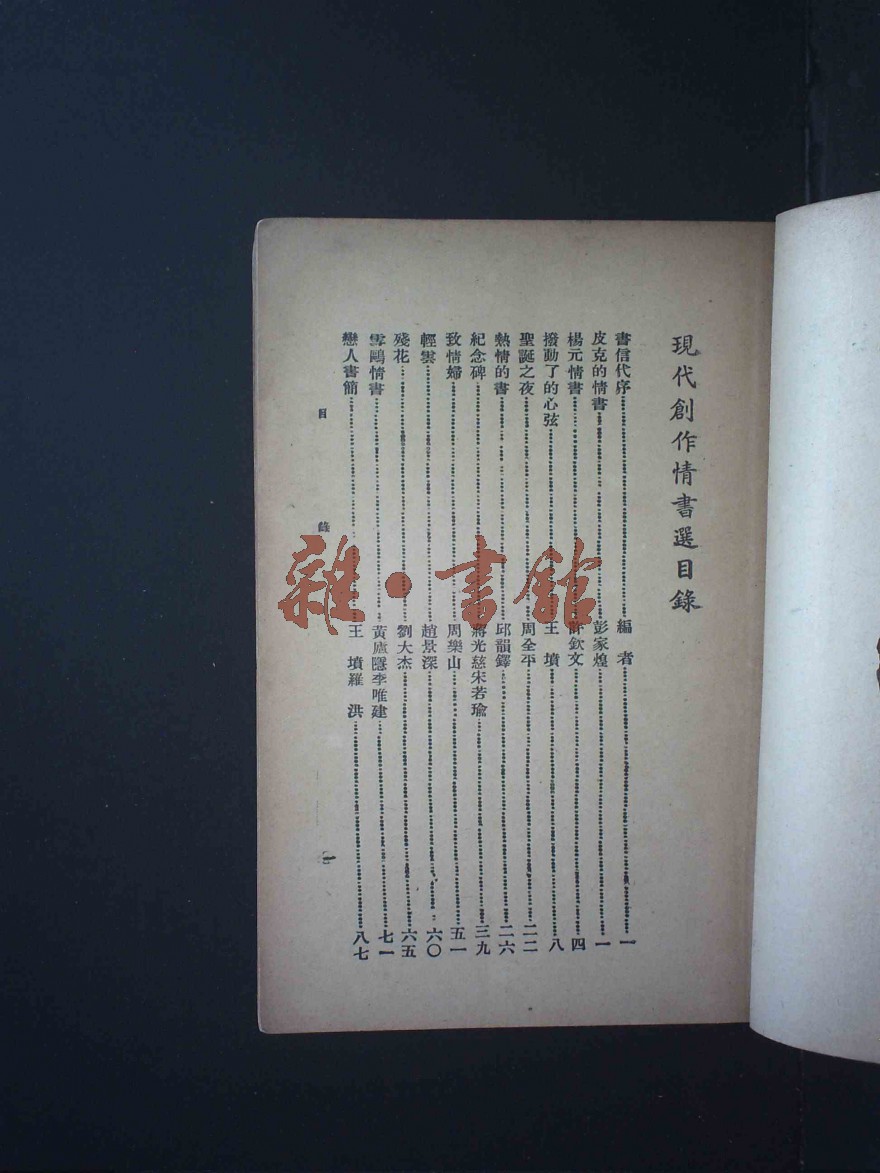 現代創作情書選目錄
書信代序 編者 一
皮克的情書 彭家煌 一
楊元情書 許欽文 四
撥動了的心弦 王墳 八
聖誕之夜 周全平 二二
熱情的書 邱韻鐸 二六
紀念碑 蔣光慈宋若瑜 三九
致情婦 周樂山 五一
輕雲 趙景深 六〇
殘花 劉大杰 六五
雪鷗情書 黃廬隱李唯建 七一
戀人書簡 王墳羅洪 八七
目錄
一
雜·書館